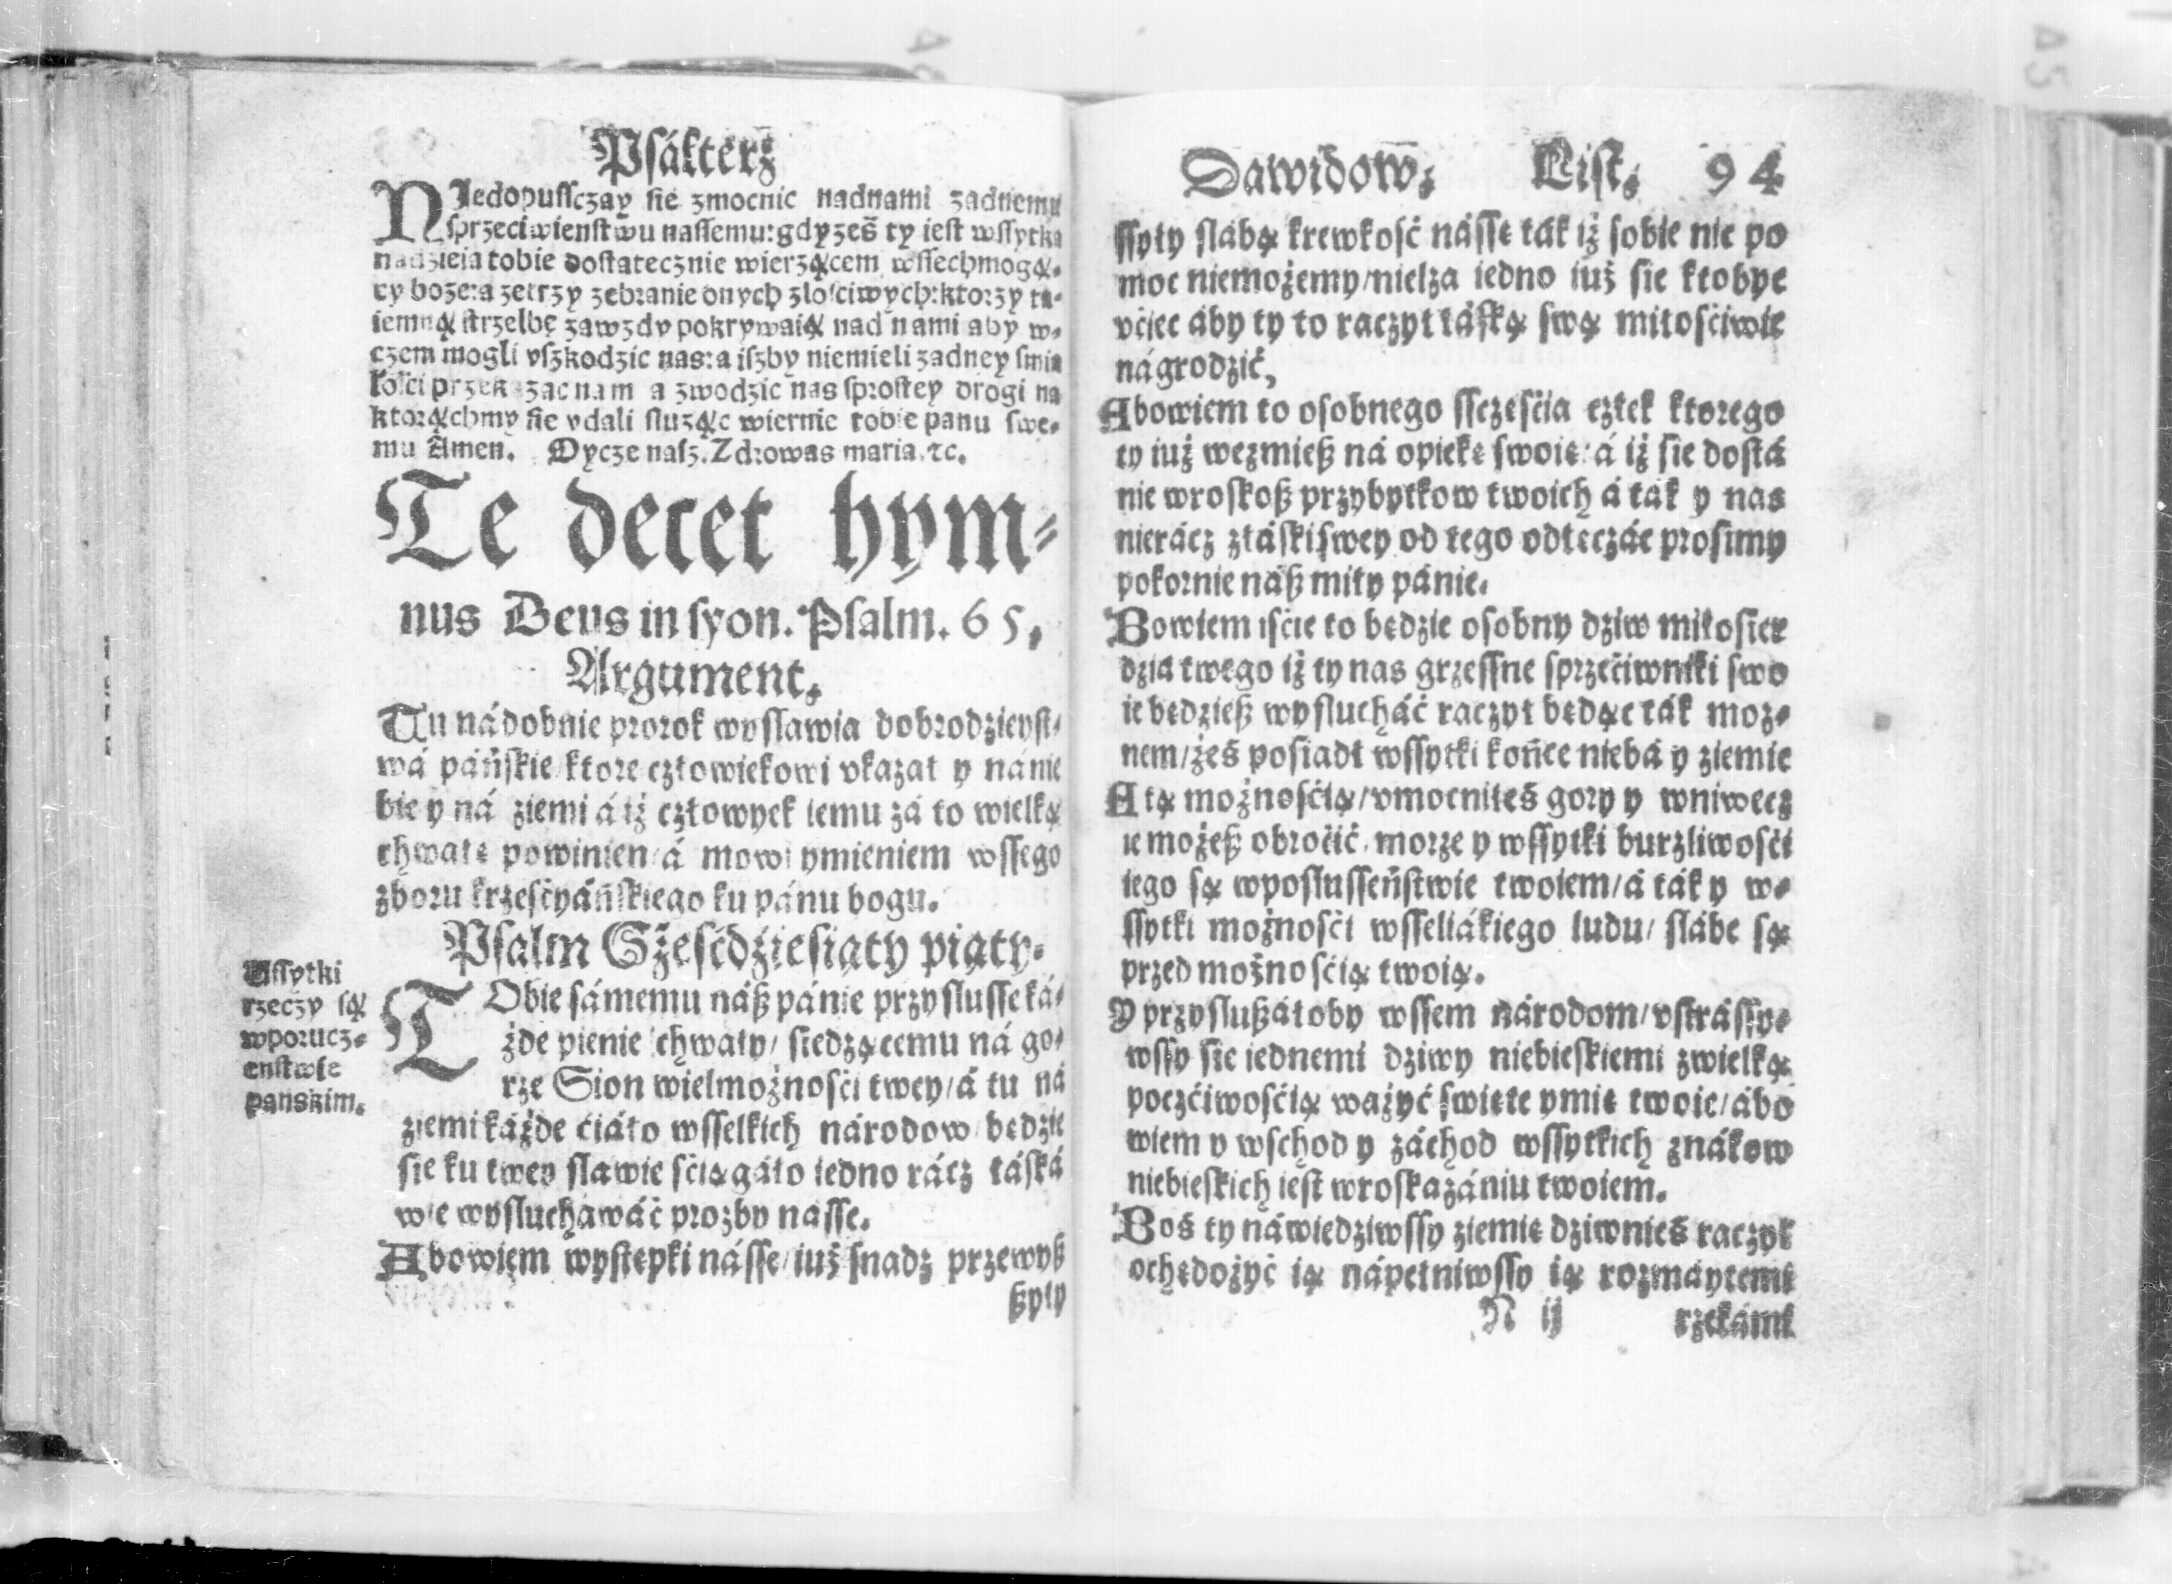 Psálterz
NIedopusſczay ſie zmocnic nadnami zadnemu
ſprzeciwienſtwu naſſemu: gdyześ ty ieſt wſſytka
nadzieia tobie doſtatecznie wierzącem wſſechmogą⸗
cy boze: a zetrzy zebranie onych złoſciwych: ktorzy ta⸗
iemną ſtrzelbę zawzdy pokrywaią nad nami aby w⸗
czem mogli vſzkodzic nas: a iſzby niemieli zadney ſmia
łoſci przekazac nam a zwodzic nas ſproſtey drogi na
ktorąchmy ſie vdali ſluząc wiernie tobie panu ſwe⸗
mu Amen. Oycze naſz. Zdrowas maria. ꝛc.
Te decet hym⸗
nus Deus in ſyon. Pſalm. 65.
Argument.
Tu nádobnie prorok wyſlawia dobrodzieyſt⸗
wá páńſkie/ ktore człowiekowi vkazał y ná nie
bie y ná ziemi á iż człowyek iemu zá to wielką
chwałę powinien/ á mowi ymieniem wſſego
zboru krzeſćyáńſkiego ku pánu bogu.
Pſalm Szeſćdzieſiąty piąty.
Wſſytki
rzeczy ſą
wporucz⸗
enſtwie
panskim.
TObie ſámemu náß pánie przyſluſſe ká⸗
żde pienie chwały/ ſiedzącemu ná go⸗
rze Sion wielmożnoſći twey/ á tu ná
ziemi káżde ćiáło wſſelkich národow będzie
ſie ku twey ſlawie ſćiągáło iedno rácz łáſká
wie wyſluchawáć prozby naſſe.
Abowięm wyſtępki náſſe/ iuż ſnadz przewyß
ßyły
Dawidow. Liſt. 94
ſſyły ſlabą krewkoſć náſſę ták iż ſobie nic po
moc niemożemy/ nielza iedno iuż ſie ktobye
vćiec áby ty to raczył łáſką ſwą miłoſćiwie
nágrodzić,
Abowiem to oſobnego ſſczeſćia człek ktorego
ty iuż wezmieß ná opiekę ſwoię: á iż ſie doſtá
nie wroſkoß przybytkow twoich á ták y nas
nierácz złáſki ſwey od tego odłeczáć proſimy
pokornie náß miły pánie.
Bowiem iſćie to będzie oſobny dziw miłoſier
dzia twego iż ty nas grzeſſne ſprzećiwniki ſwo
ie będzieß wyſlucháć raczył będąc ták moz⸗
nem/ żeś poſiadł wſſytki końce niebá y ziemie
A tą możnoſćią/ vmocniłeś gory y wniwecz
ie możeß obroćić, morze y wſſytki burzliwoſći
iego ſą wpoſluſſeńſtwie twoiem/ á ták y w⸗
ſſytki możnoſći wſſeliákiego ludu/ ſlábe ſą
przed możnoſćią twoią.
Y przyſlußáłoby wſſem národom/ vſtráſſy⸗
wſſy ſie iednemi dziwy niebieſkiemi zwielką
poczćiwoſćią ważyć ſwięte ymię twoie/ ábo
wiem y wſchod y záchod wſſytkich znákow
niebieſkich ieſt wroſkazániu twoiem.
Boś ty náwiedziwſſy ziemię dziwnieś raczył
ochędożyć ią nápełniwſſy ią rozmáytemi
N ij rzekámi